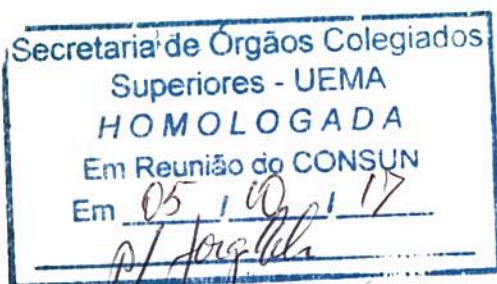 Secretaria de Órgãos Colegiados
Superiores - UEMA
HOMOLOGADA
Em Reunião do CONSUN
Em 05 / 10 / 17
p/